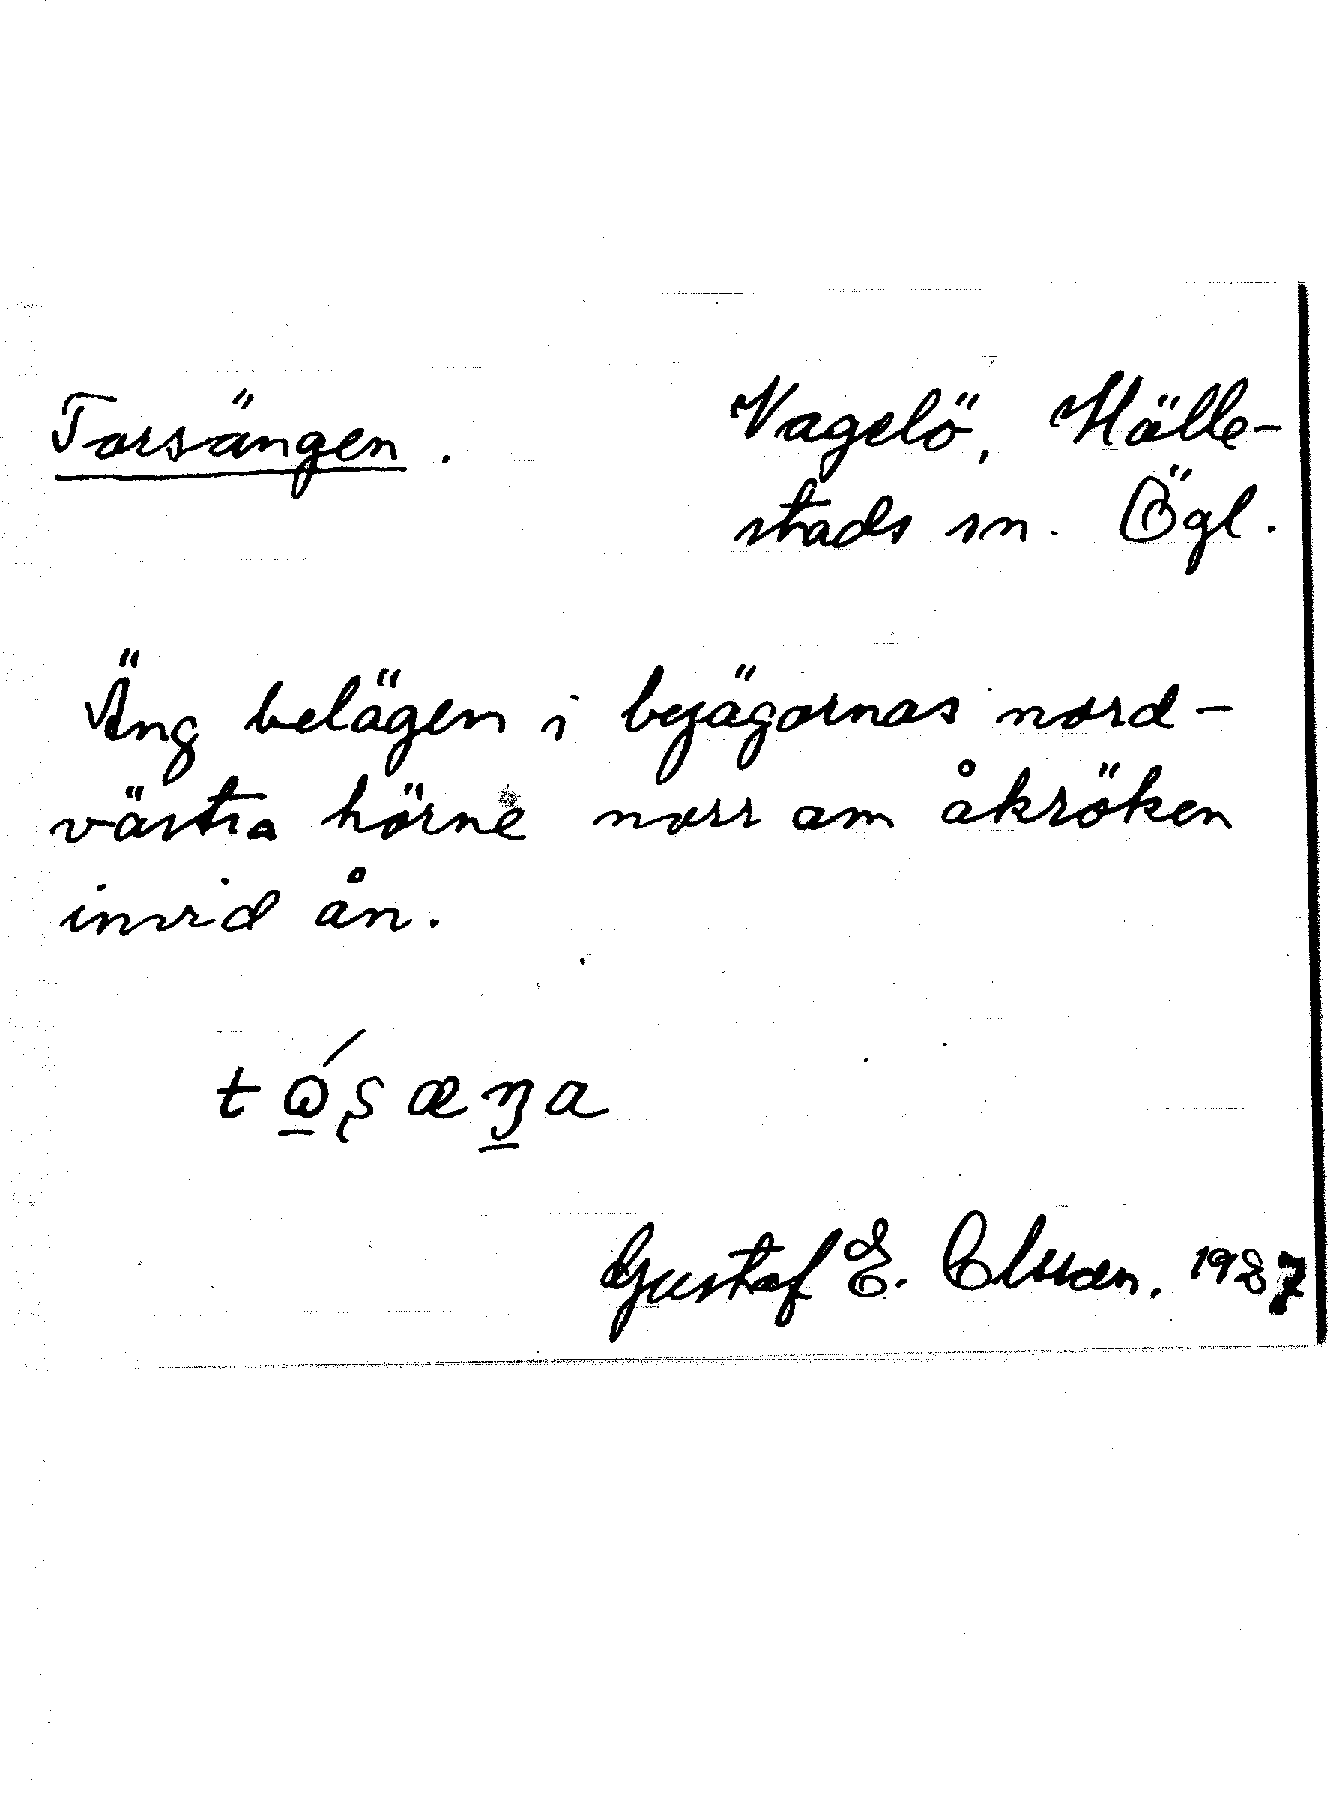 Torsängen. Vagelö, Hälle-
stads sn. Ögl.
Äng belägen i byägornas nord-
västra hörne norr om åkröken
invid ån.
Gustaf E. Olsson. 1937